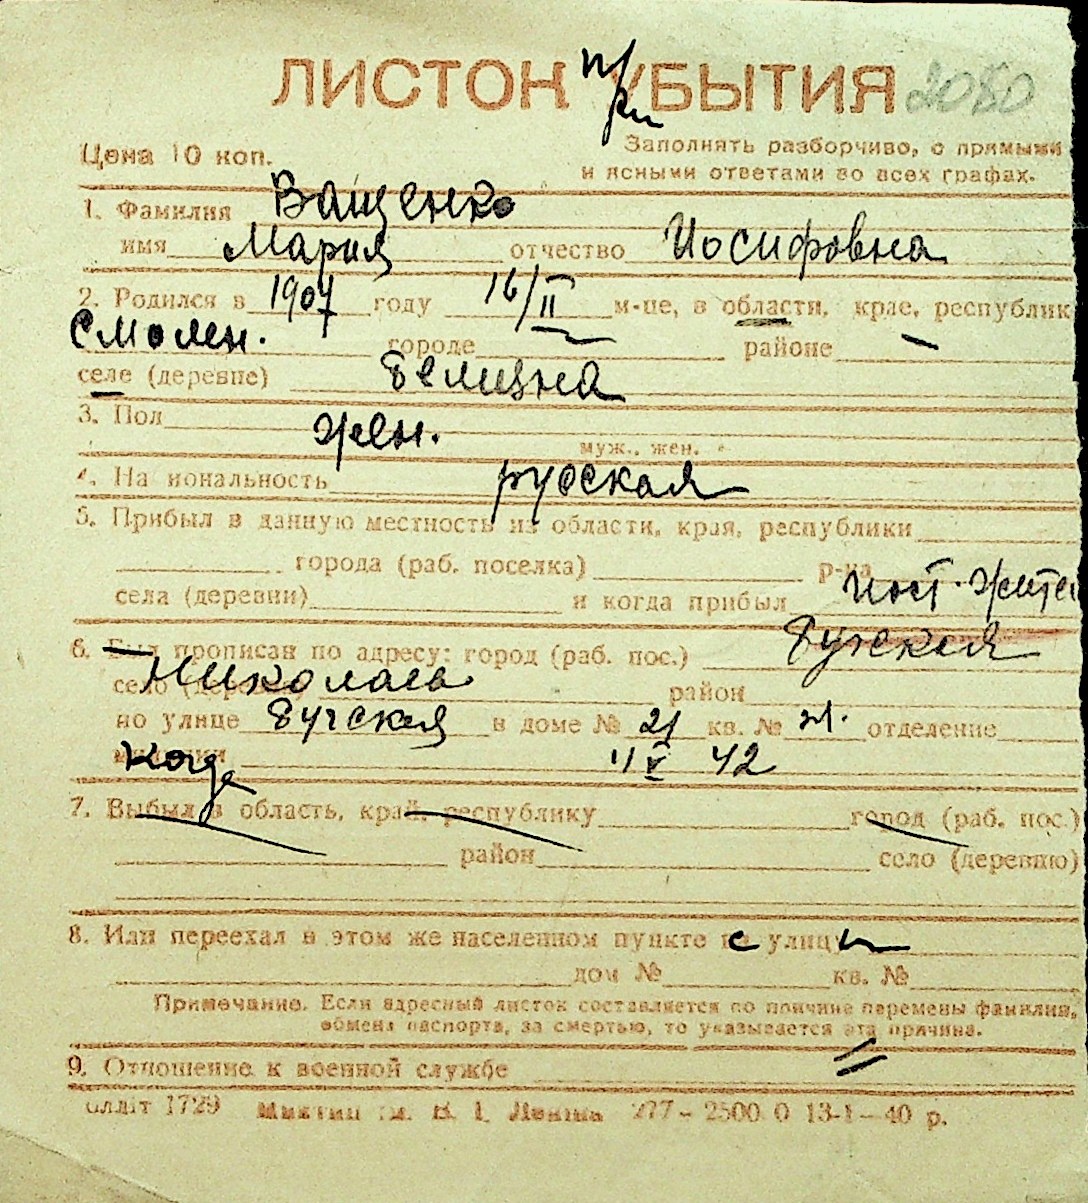 ЛИСТОК при УБЫТИЯ 2080
Цена 10 коп.
Заполнять разборчиво, с прямыми
и ясными ответами во всех графах.
1. Фамилия Ващенко
имя Мария отчество Иосифовна
2. Родился в 1907 году 16/II м-це, в области, крае, республик
Смолен. городе районе
селе (деревне)
3. Пол жен.
муж., жен.
4. На иональность русская
5. Прибыл в данную местность из области, края, республики
города (раб. поселка) р-на
села (деревни) и когда прибыл пост. жител
6. Был прописан по адресу: город (раб. пос.) Бугская
село (деревня) Николаев район
по улице Бугская в доме № 21 кв. № отделение
милиции когда 4 V 42
7. Выбыл в область, край, республику город (раб. пос.)
район село (деревню)
8. Или переехал в этом же населенном пункте с улицы
дом № кв. №
Примечание. Если адресный листок составляется по причине перемены фамилии,
обмена паспорта, за смертью, то указывается эта причина.
9. Отношение к военной службе
1729 277-2500.0 13-1-40 р.